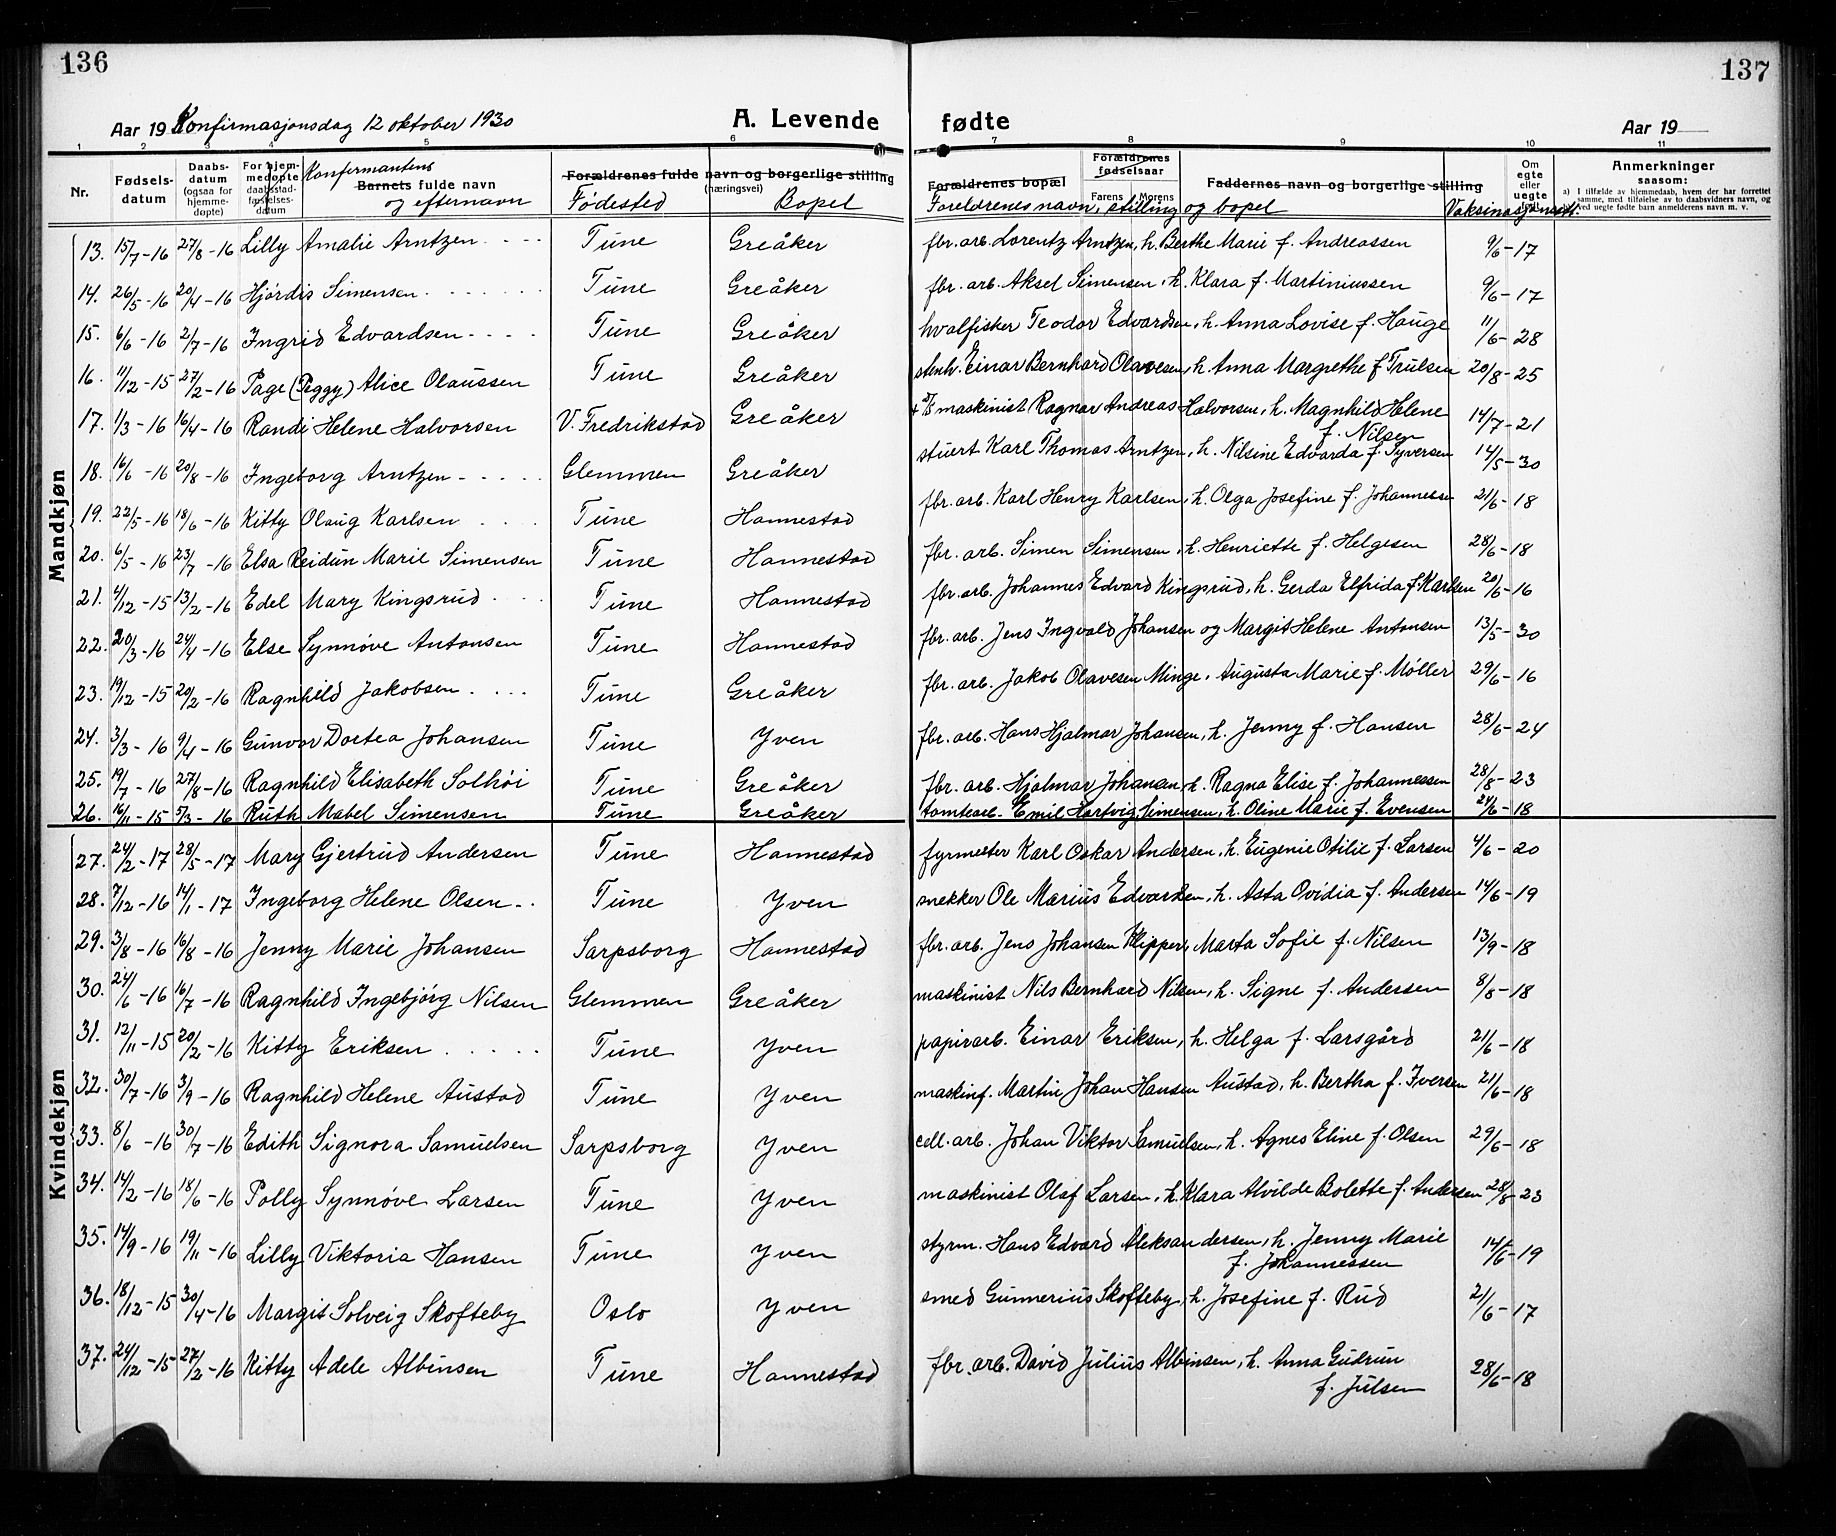 136
137
Aar 19 Konfirmasjonsdag 12 oktober 1930 A. Levende fødte Aar 19
1 2 3 4 5 6 7 8 9 10 11
Nr. Fødsels-datum Daabs-datum (ogsaa for hjemme-døpte) For hjem-medøpte daabsstad-fæstelses-datum Konfirmantens Barnets fulde navn og efternavn Forældrenes fulde navn og borgerlige stilling (næringsvei) Fødested Bopel Forældrenes bopæl Forældrenes fødselsaar Farens Morens Faddernes navn og borgerlige stilling Foreldrenes navn, stilling og bopel Om egte eller uegte født Vaksinasjonsatt. Anmerkninger saasom:
a) I tilfælde av hjemmedaab, hvem der har forrettet samme, med tilføielse av to daabsvidners navn, og ved uegte fødte barn anmelderens navn m. v.
Mandkjøn
13. 15/7-16 27/8-16 Lilly Amalie Arntzen Tune Greåker fbr. arb. Lorentz Arntzen, h. Berthe Marie f. Andreassen 9/6-17
14. 26/5-16 20/4-16 Hjørdis Simensen Tune Greåker fbr. arb. Aksel Simensen, h. Klara f. Martiniussen 9/6-17
15. 6/6-16 2/7-16 Ingrid Edvardsen Tune Greåker hvalfisker Teodor Edvardsen, h. Anna Lovise f. Hauge 11/6-28
16. 11/12-15 27/2-16 Page (Peggy) Alice Olaussen Tune Greåker stenh. Einar Bernhard Olavesen, h. Anna Margrethe f. Trulsen 20/8-25
17. 1/3-16 16/4-16 Randi Helene Halvorsen V. Fredrikstad Greåker maskinist Ragnar Andreas Halvorsen, h. Magnhild Helene f. Nilsen 14/7-21
18. 16/6-16 20/8-16 Ingeborg Arntzen Glemmen Greåker stuert Karl Thomas Arntzen, h. Nilsine Edvarda f. Syversen 14/5-30
19. 22/5-16 18/6-16 Kitty Olaug Karlsen Tune Hannestad fbr. arb. Karl Henry Karlsen, h. Olga Josefine f. Johannesse 21/6-18
20. 6/5-16 23/7-16 Elsa Reidun Marie Simensen Tune Hannestad fbr. arb. Simen Simensen, h. Henriette f. Helgesen 28/6-18
21. 4/12-15 13/2-16 Edel Mary Kingsrud Tune Hannestad fbr. arb. Johannes Edvard Kingsrud, h. Gerda Elfrida f. Karlsen 20/6-16
22. 20/3-16 24/4-16 Else Synnøve Antonsen Tune Hannestad fbr. arb. Jens Ingvald Johansen og Margit Helene Antonsen 13/5-30
23. 19/12-15 20/2-16 Ragnhild Jakobsen Tune Greåker fbr. arb. Jakob Olavesen Minge, Augusta Marie f. Møller 29/6-16
24. 3/3-16 9/4-16 Gunvor Dortea Johansen Tune Yven fbr. arb. Hans Hjalmar Johansen, h. Jenny f. Hansen 28/6-24
25. 19/7-16 27/8-16 Ragnhild Elisabeth Solhøi Tune Greåker fbr. arb. Hjalmar Johansen, h. Ragna Elise f. Johannessen 28/8-23
26. 16/11-15 5/3-16 Ruth Mabel Simensen Tune Greåker tomtearb. Emil Hartvig Simensen, h. Oline Marie f. Evensen 24/6-18
Kvindekjøn
27. 24/2-17 28/5-17 Mary Gjertrud Andersen Tune Hannestad fyrmester Karl Oskar Andersen, h. Eugenie Otilie f. Larsen 4/6-20
28. 7/12-16 14/1-17 Ingeborg Helene Olsen Tune Yven snekker Ole Marius Edvardsen, h. Asta Ovidia f. Andersen 14/6-19
29. 3/8-16 16/8-16 Jenny Marie Johansen Sarpsborg Hannestad fbr. arb. Jens Johansen Klipper, Marta Sofie f. Nilsen 13/9-18
30. 24/6-16 16/7-16 Ragnhild Ingebjørg Nilsen Glemmen Greåker maskinist Nils Bernhard Nilsen, h. Signe f. Andersen 8/8-18
31. 12/11-15 20/2-16 Kitty Eriksen Tune Yven papirarb. Einar Eriksen, h. Helga f. Larsgård 21/6-18
32. 30/7-16 3/9-16 Ragnhild Helene Austad Tune Yven maskinf. Martin Johan Hansen Austad, h. Bertha f. Iversen 21/6-18
33. 8/6-16 30/7-16 Edith Signora Samuelsen Sarpsborg Yven cell. arb. Johan Viktor Samuelsen, h. Agnes Eline f. Olsen 29/6-18
34. 14/2-16 18/6-16 Polly Synnøve Larsen Tune Yven maskinist Olaf Larsen, h. Klara Alvilde Bolette f. Andersen 28/8-23
35. 14/9-16 19/11-16 Lilly Viktoria Hansen Tune Yven styrm. Hans Edvard Aleksandersen, h. Jenny Marie f. Johannessen 14/6-19
36. 18/12-15 30/4-16 Margit Solveig Skofteby Oslo Yven smed Gunnerius Skofteby, h. Josefine f. Rud 21/6-17
37. 24/12-15 27/2-16 Kitty Adele Albinsen Tune Hannestad fbr. arb. David Julius Albinsen, h. Anna Gudrun f. Julsen 28/6-18